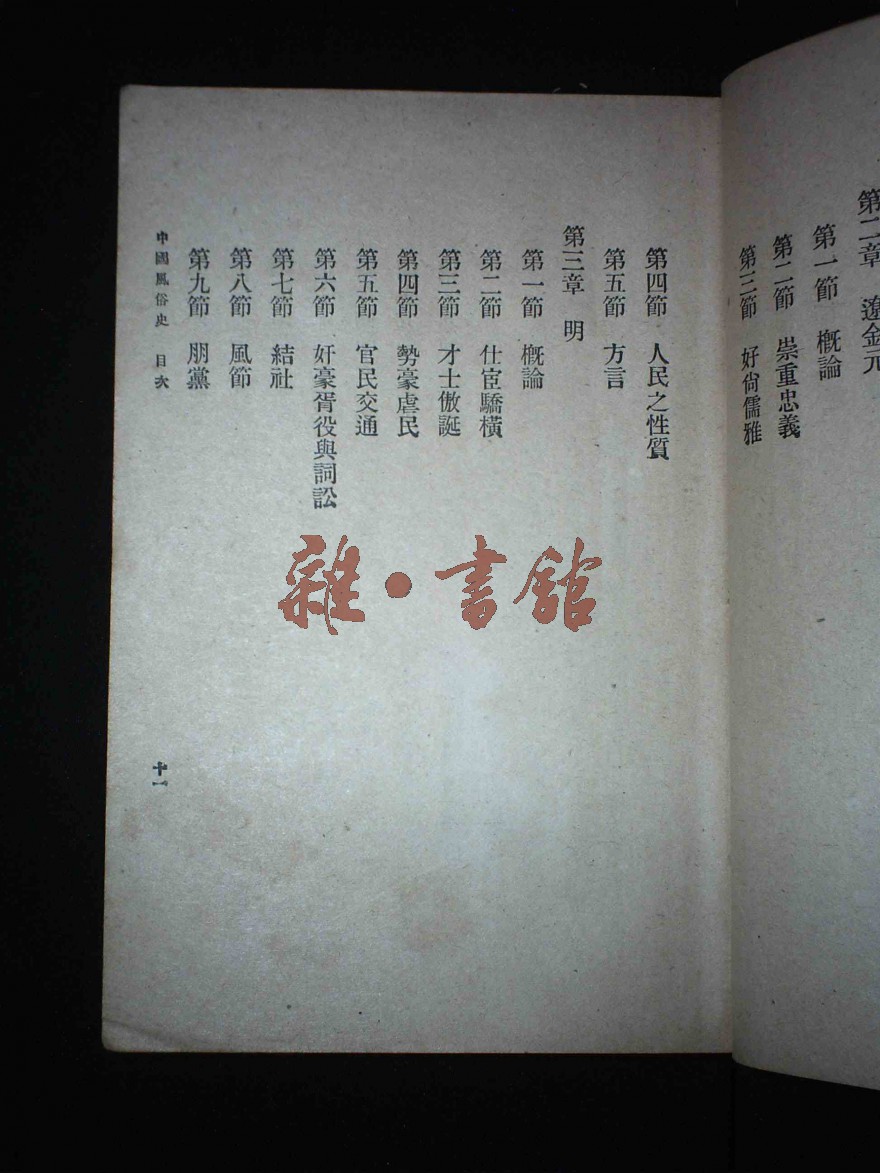 第二章　遼金元
第一節　概論
第二節　崇重忠義
第三節　好尙儒雅
第四節　人民之性質
第五節　方言
第三章　明
第一節　概論
第二節　仕宦驕橫
第三節　才士傲誕
第四節　勢豪虐民
第五節　官民交通
第六節　奸豪胥役與詞訟
第七節　結社
第八節　風節
第九節　朋黨
中國風俗史　目次
十一
雜·書館